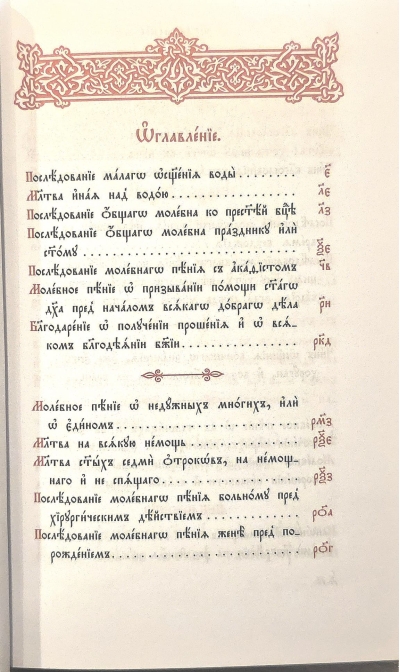 Ѡ҆главле́нїе.
Послѣ́дованїе ма́лагѡ ѡ҆сщ҃е́нїѧ воды̀ . . . . . . . . . . . є҃
Мл҃тва и҆на́ѧ над̾ водо́ю . . . . . . . . . . . л҃є
Послѣ́дованїе ѻ҆́бщагѡ моле́бна ко прест҃ѣ́й бц҃ѣ л҃з
Послѣ́дованїе ѻ҆́бщагѡ моле́бна пра́зднику и҆лѝ
ст҃о́му . . . . . . . . . . . ѯ҃є
Послѣ́дованїе моле́бнагѡ пѣ́нїѧ съ а҆ка́ѳїстомъ ч҃в
Моле́бное пѣ́нїе ѡ҆ призыва́нїи по́мощи ст҃а́гѡ
дх҃а пред̾ нача́ломъ всѧ́кагѡ до́брагѡ дѣ́ла р҃и
Бл҃годаре́нїе ѡ҆ полꙋче́нїи проше́нїѧ и҆ ѡ҆ всѧ́-
комъ бл҃годѣѧ́нїи бж҃їи . . . . . . . . . . . рк҃д
Моле́бное пѣ́нїе ѡ҆ недꙋ́жныхъ мно́гихъ, и҆лѝ
ѡ҆ є҆ди́номъ . . . . . . . . . . . рм҃з
Мл҃тва на всѧ́кꙋю не́мощь . . . . . . . . . . . рѯ҃є
Мл҃тва ст҃ы́хъ седмѝ ѻ҆трокѡ́въ, на не́мощ-
наго и҆ не спѧ́щаго . . . . . . . . . . . рѯ҃з
Послѣ́дованїе моле́бнагѡ пѣ́нїѧ больно́мꙋ пред̾
хїрꙋрги́ческимъ дѣ́йствїемъ . . . . . . . . . . . ро҃а
Послѣ́дованїе моле́бнагѡ пѣ́нїѧ женѣ̀ пред̾ по-
рожде́нїемъ . . . . . . . . . . . ро҃г